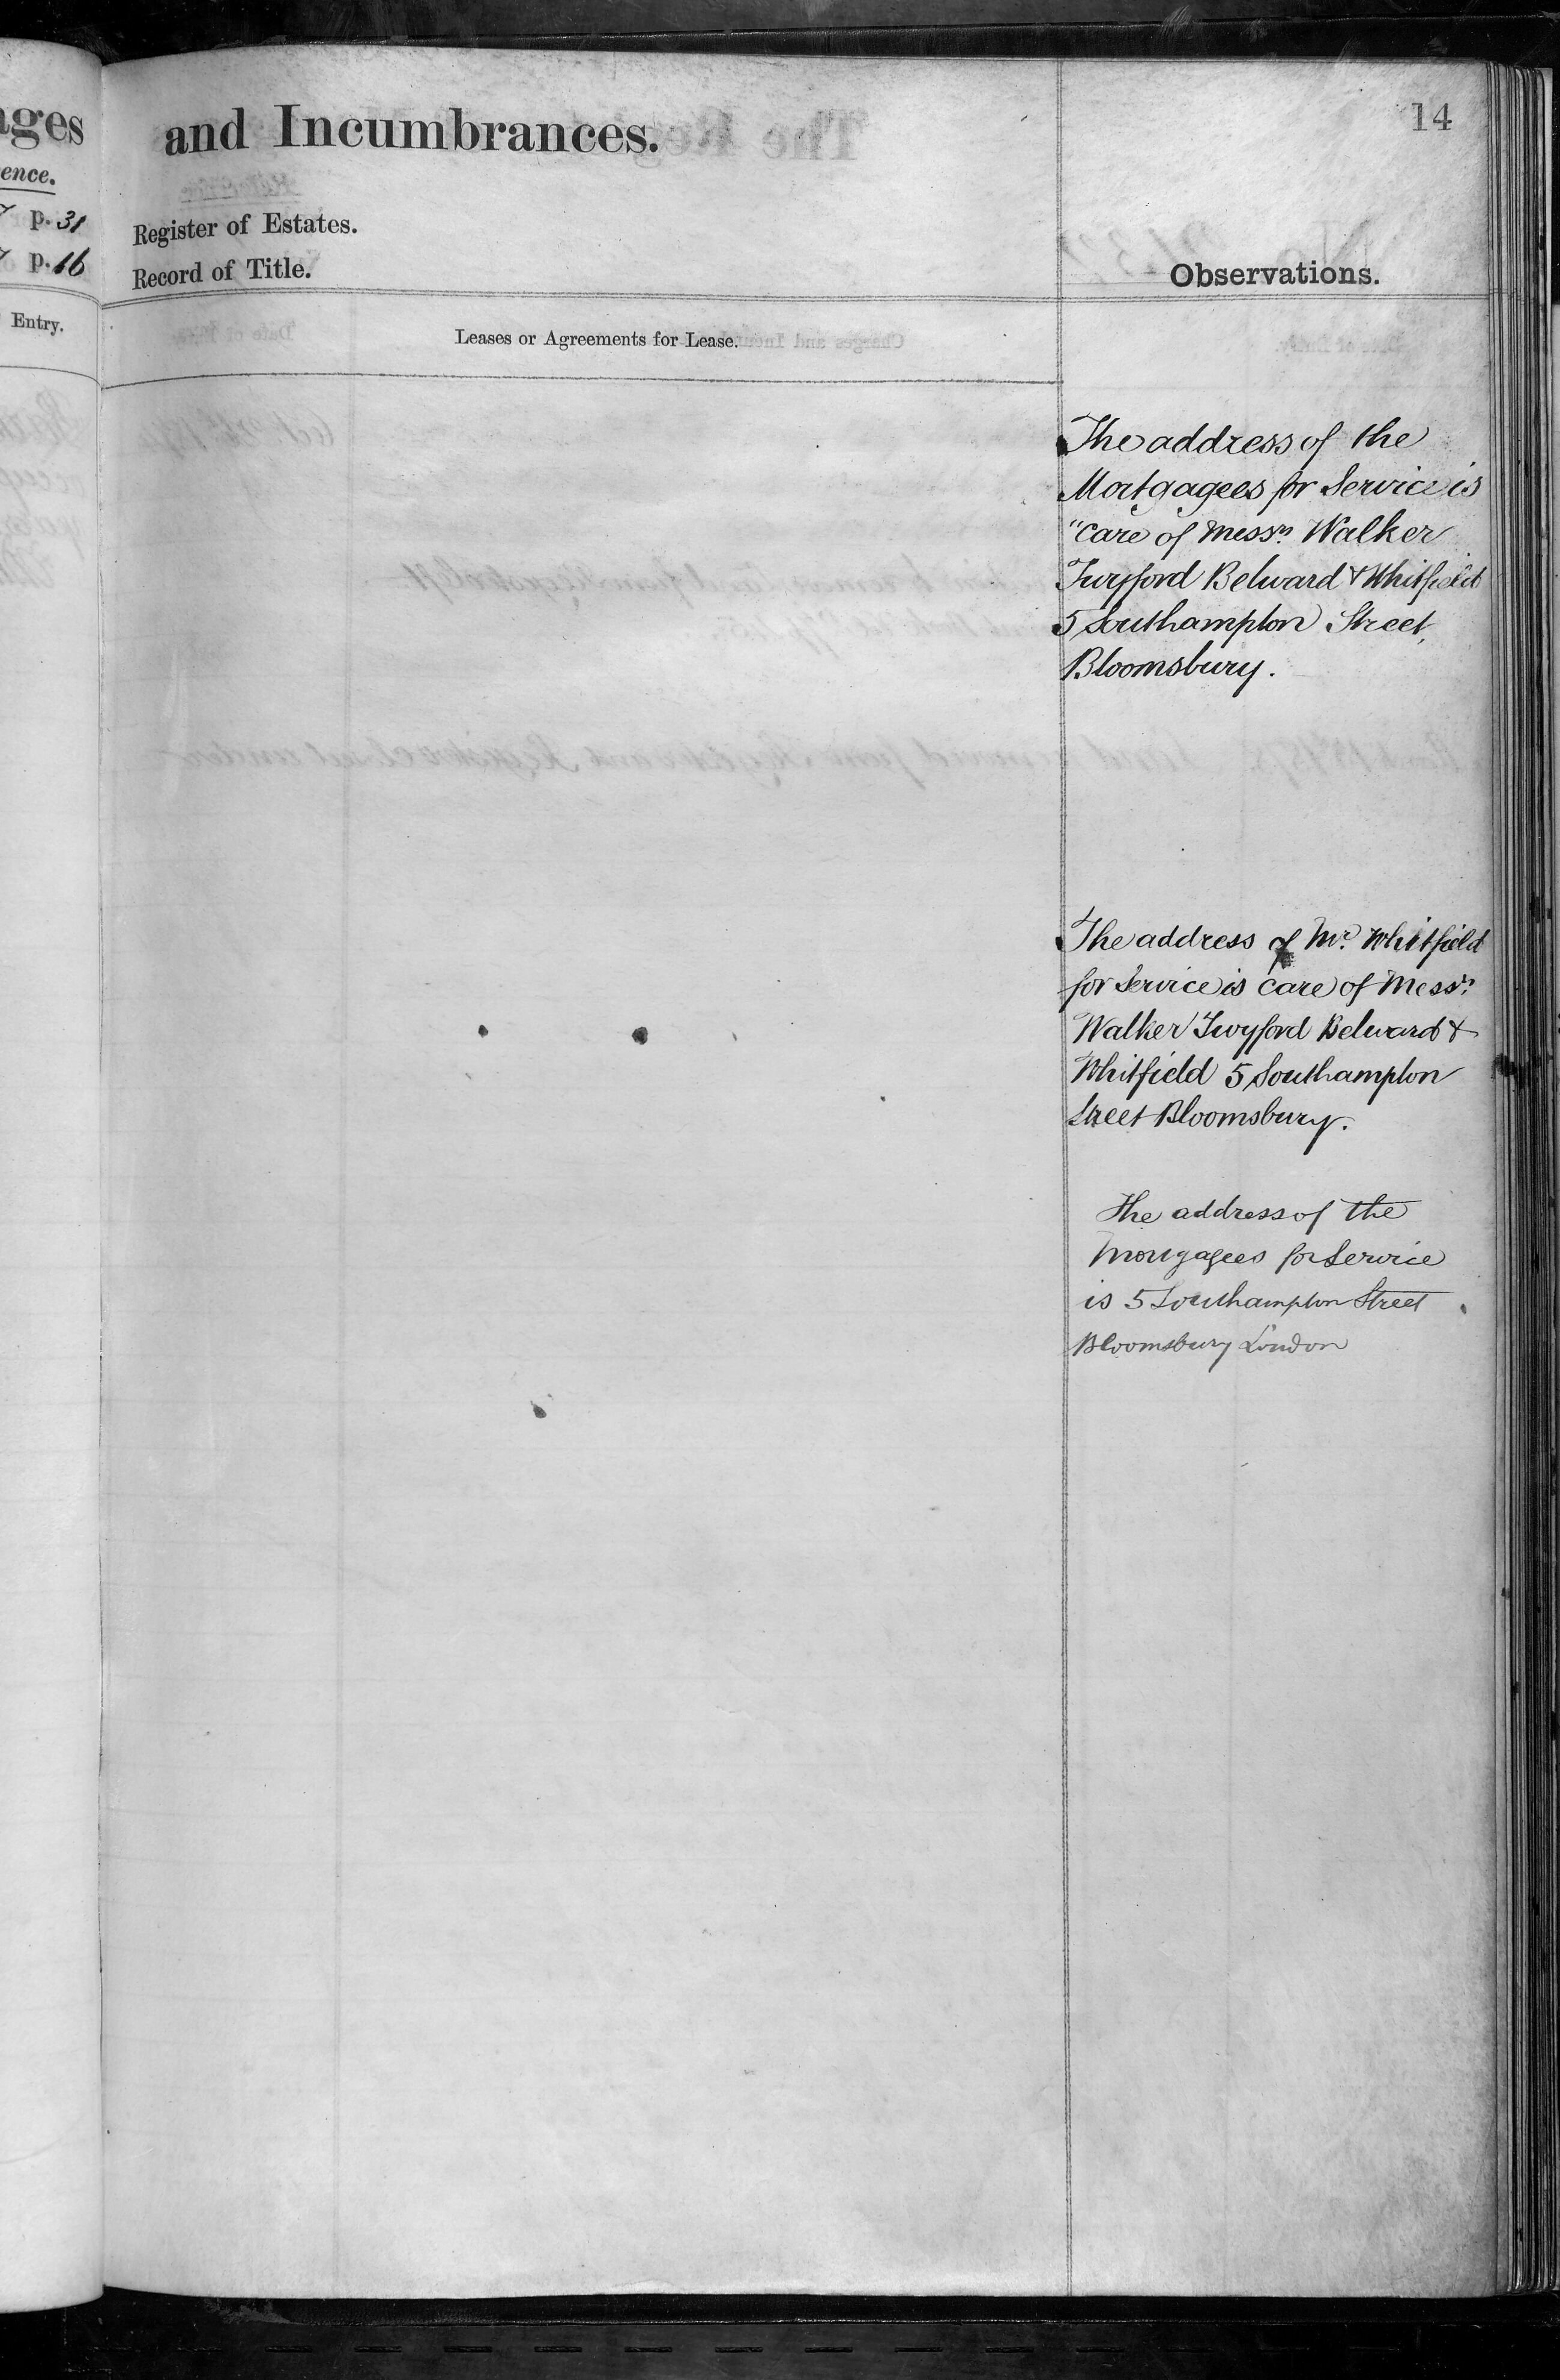 ages
ence.
p. 31
p. 16
Entry.
14
and Incumbrances.
Register of Estates.
Record of Title.
Observations.
Leases or Agreements for Lease.
The address of the
Mortgagees for Service is
"Care of Messrs. Walker
Twyford Belward & Whitfield
5 Southampton Street,
Bloomsbury.
The address of Mr. Whitfield
for Service is care of Messrs.
Walker Twyford Belward &
Whitfield 5 Southampton
Street Bloomsbury.
The address of the
Mortgagees for Service
is 5 Southampton Street
Bloomsbury London